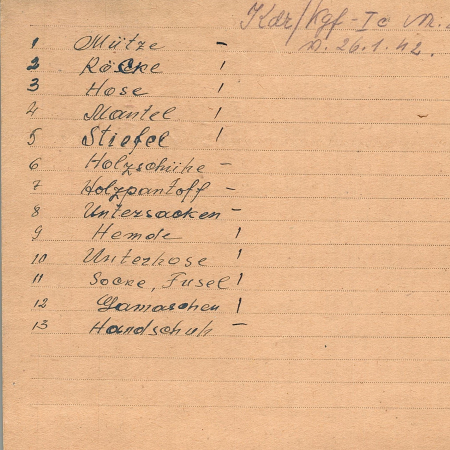 Kdr/Kgf-Ic
v. 26.1.42.
1 Mütze –
2 Röcke /
3 Hose /
4 Mantel /
5 Stiefel /
6 Holzschuhe –
7 Holzpantoff –
8 Untersacken –
9 Hemde /
10 Unterhose /
11 Socke, Fusel /
12 Gamaschen /
13 Handschuh –